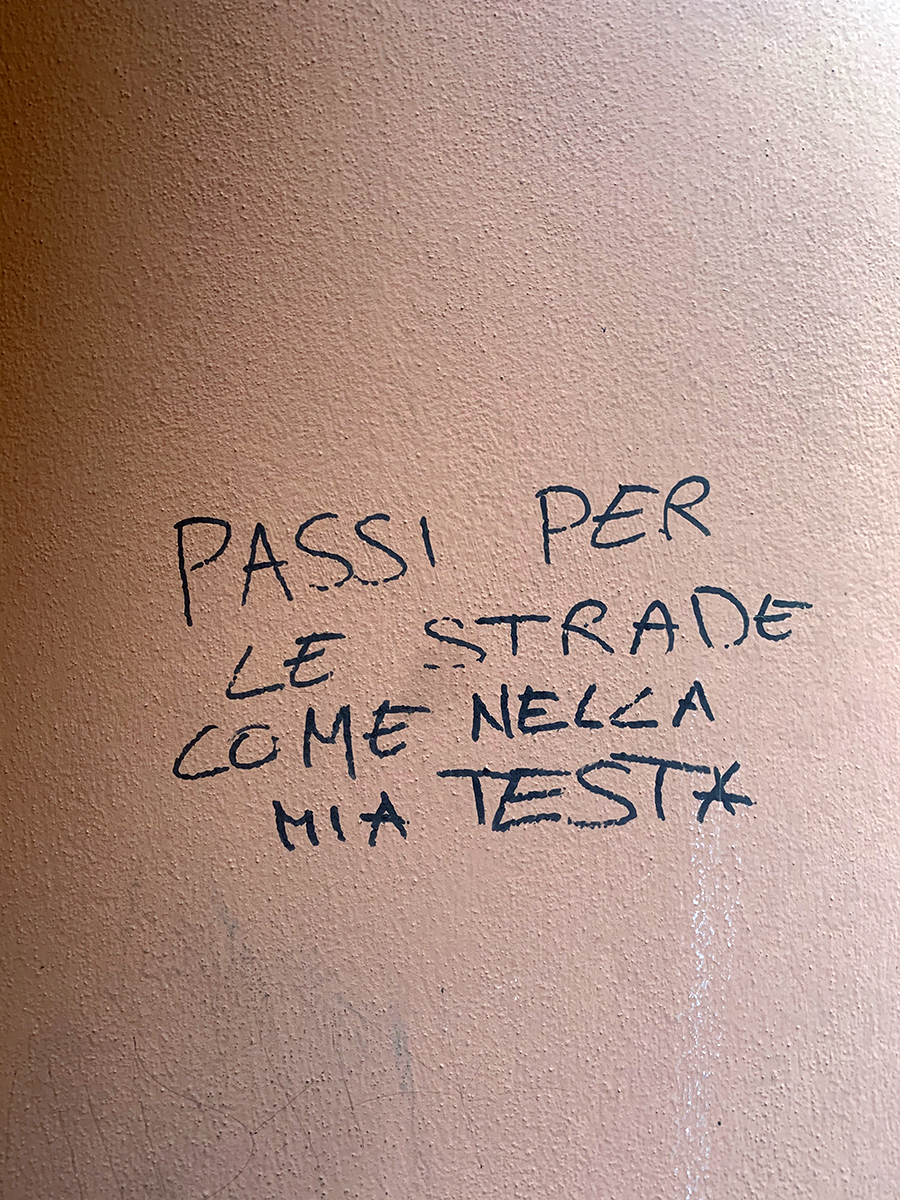 PASSI PER
LE STRADE
COME NELLA
MIA TESTA